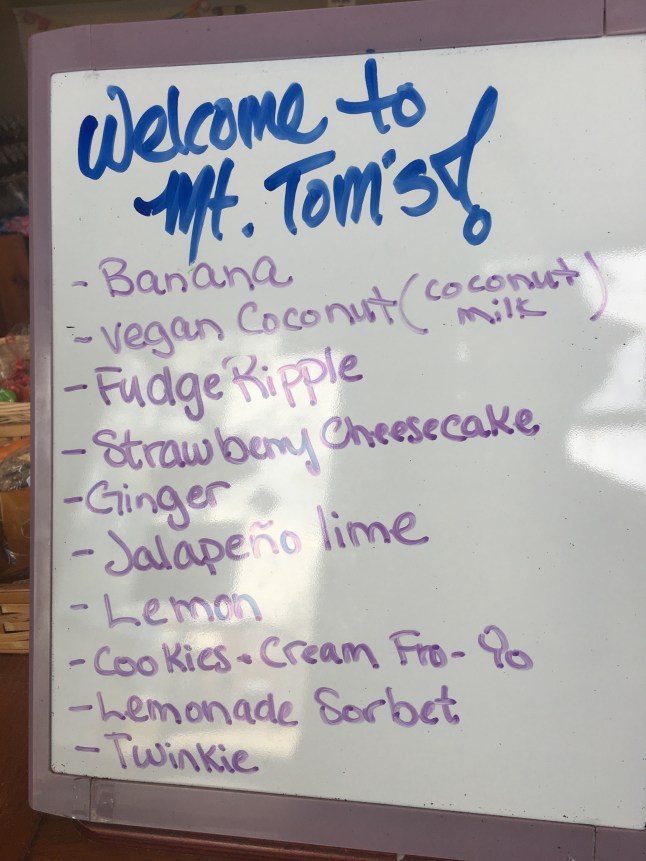 Welcome to
Mt. Tom's!
- Banana
- vegan Coconut (coconut milk)
- Fudge Ripple
- Strawberry Cheesecake
- Ginger
- Jalapeño lime
- Lemon
- Cookies + Cream Fro-Yo
- Lemonade Sorbet
- Twinkie